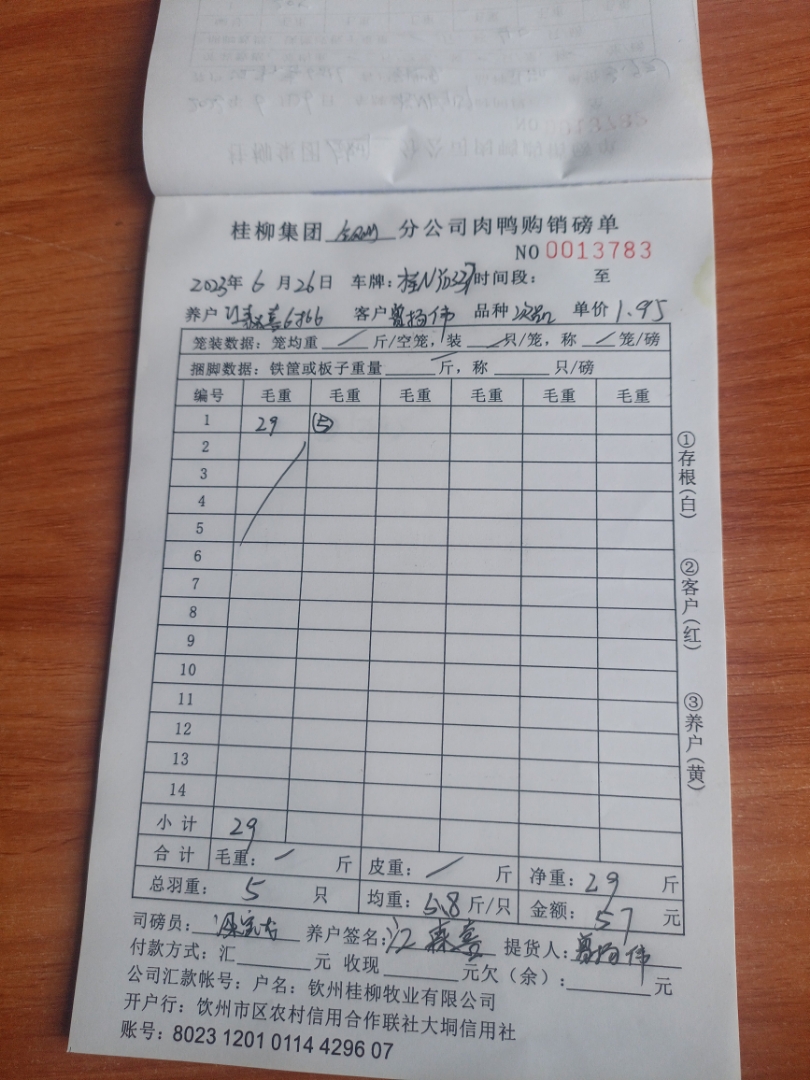 桂柳集团 钦州 分公司肉鸭购销磅单
NO 0013783
2023年 6 月 26 日 车牌: 桂N 时间段: 至
养户 6766 客户 曾扬伟 品种 单价 1.95
笼装数据: 笼均重 / 斤/空笼, 装 / 只/笼, 称 / 笼/磅
捆脚数据: 铁筐或板子重量 斤, 称 只/磅
编号 毛重 毛重 毛重 毛重 毛重 毛重
1 29 (5)
2
3
4
5
6
7
8
9
10
11
12
13
14
小计 29
合计 毛重: / 斤 皮重: / 斤 净重: 29 斤
总羽重: 5 只 均重: 5.8 斤/只 金额: 57 元
司磅员: 养户签名: 江 喜 提货人: 曾扬伟
付款方式: 汇 元 收现 元欠(余): 元
公司汇款帐号: 户名: 钦州桂柳牧业有限公司
开户行: 饮州市区农村信用合作联社大垌信用社
账号: 8023 1201 0114 4296 07
①存根(白)
②客户(红)
③养户(黄)